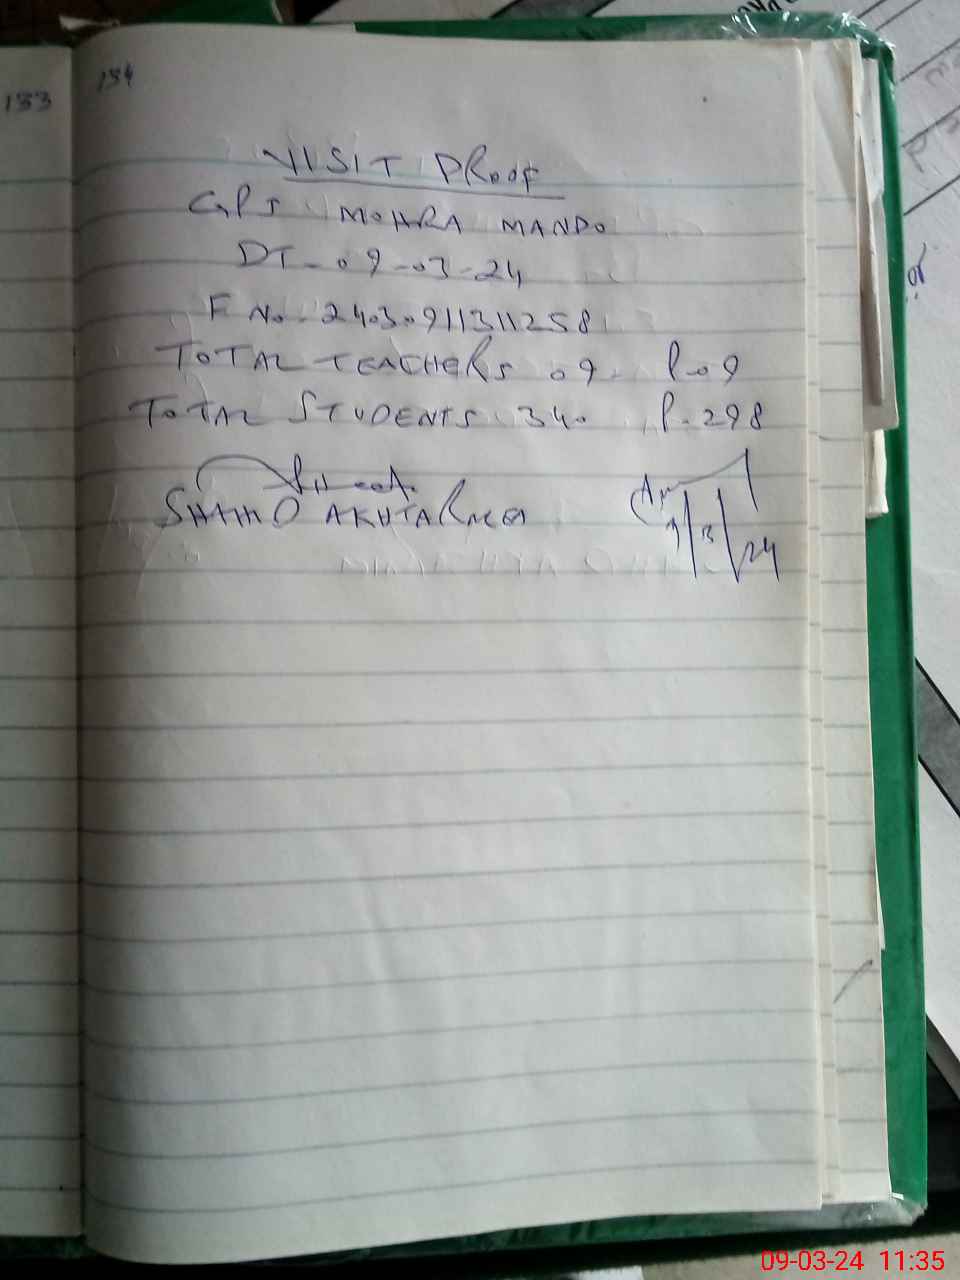 133
134
VISIT PROOF
GPS MOHRA MANDO
DT-09-03-24
F No. 24030911311258
TOTAL TEACHERS 09- P-09
TOTAL STUDENTS 340 P-298
SHAHID AKHTAR MEA
9/3/24
09-03-24 11:35